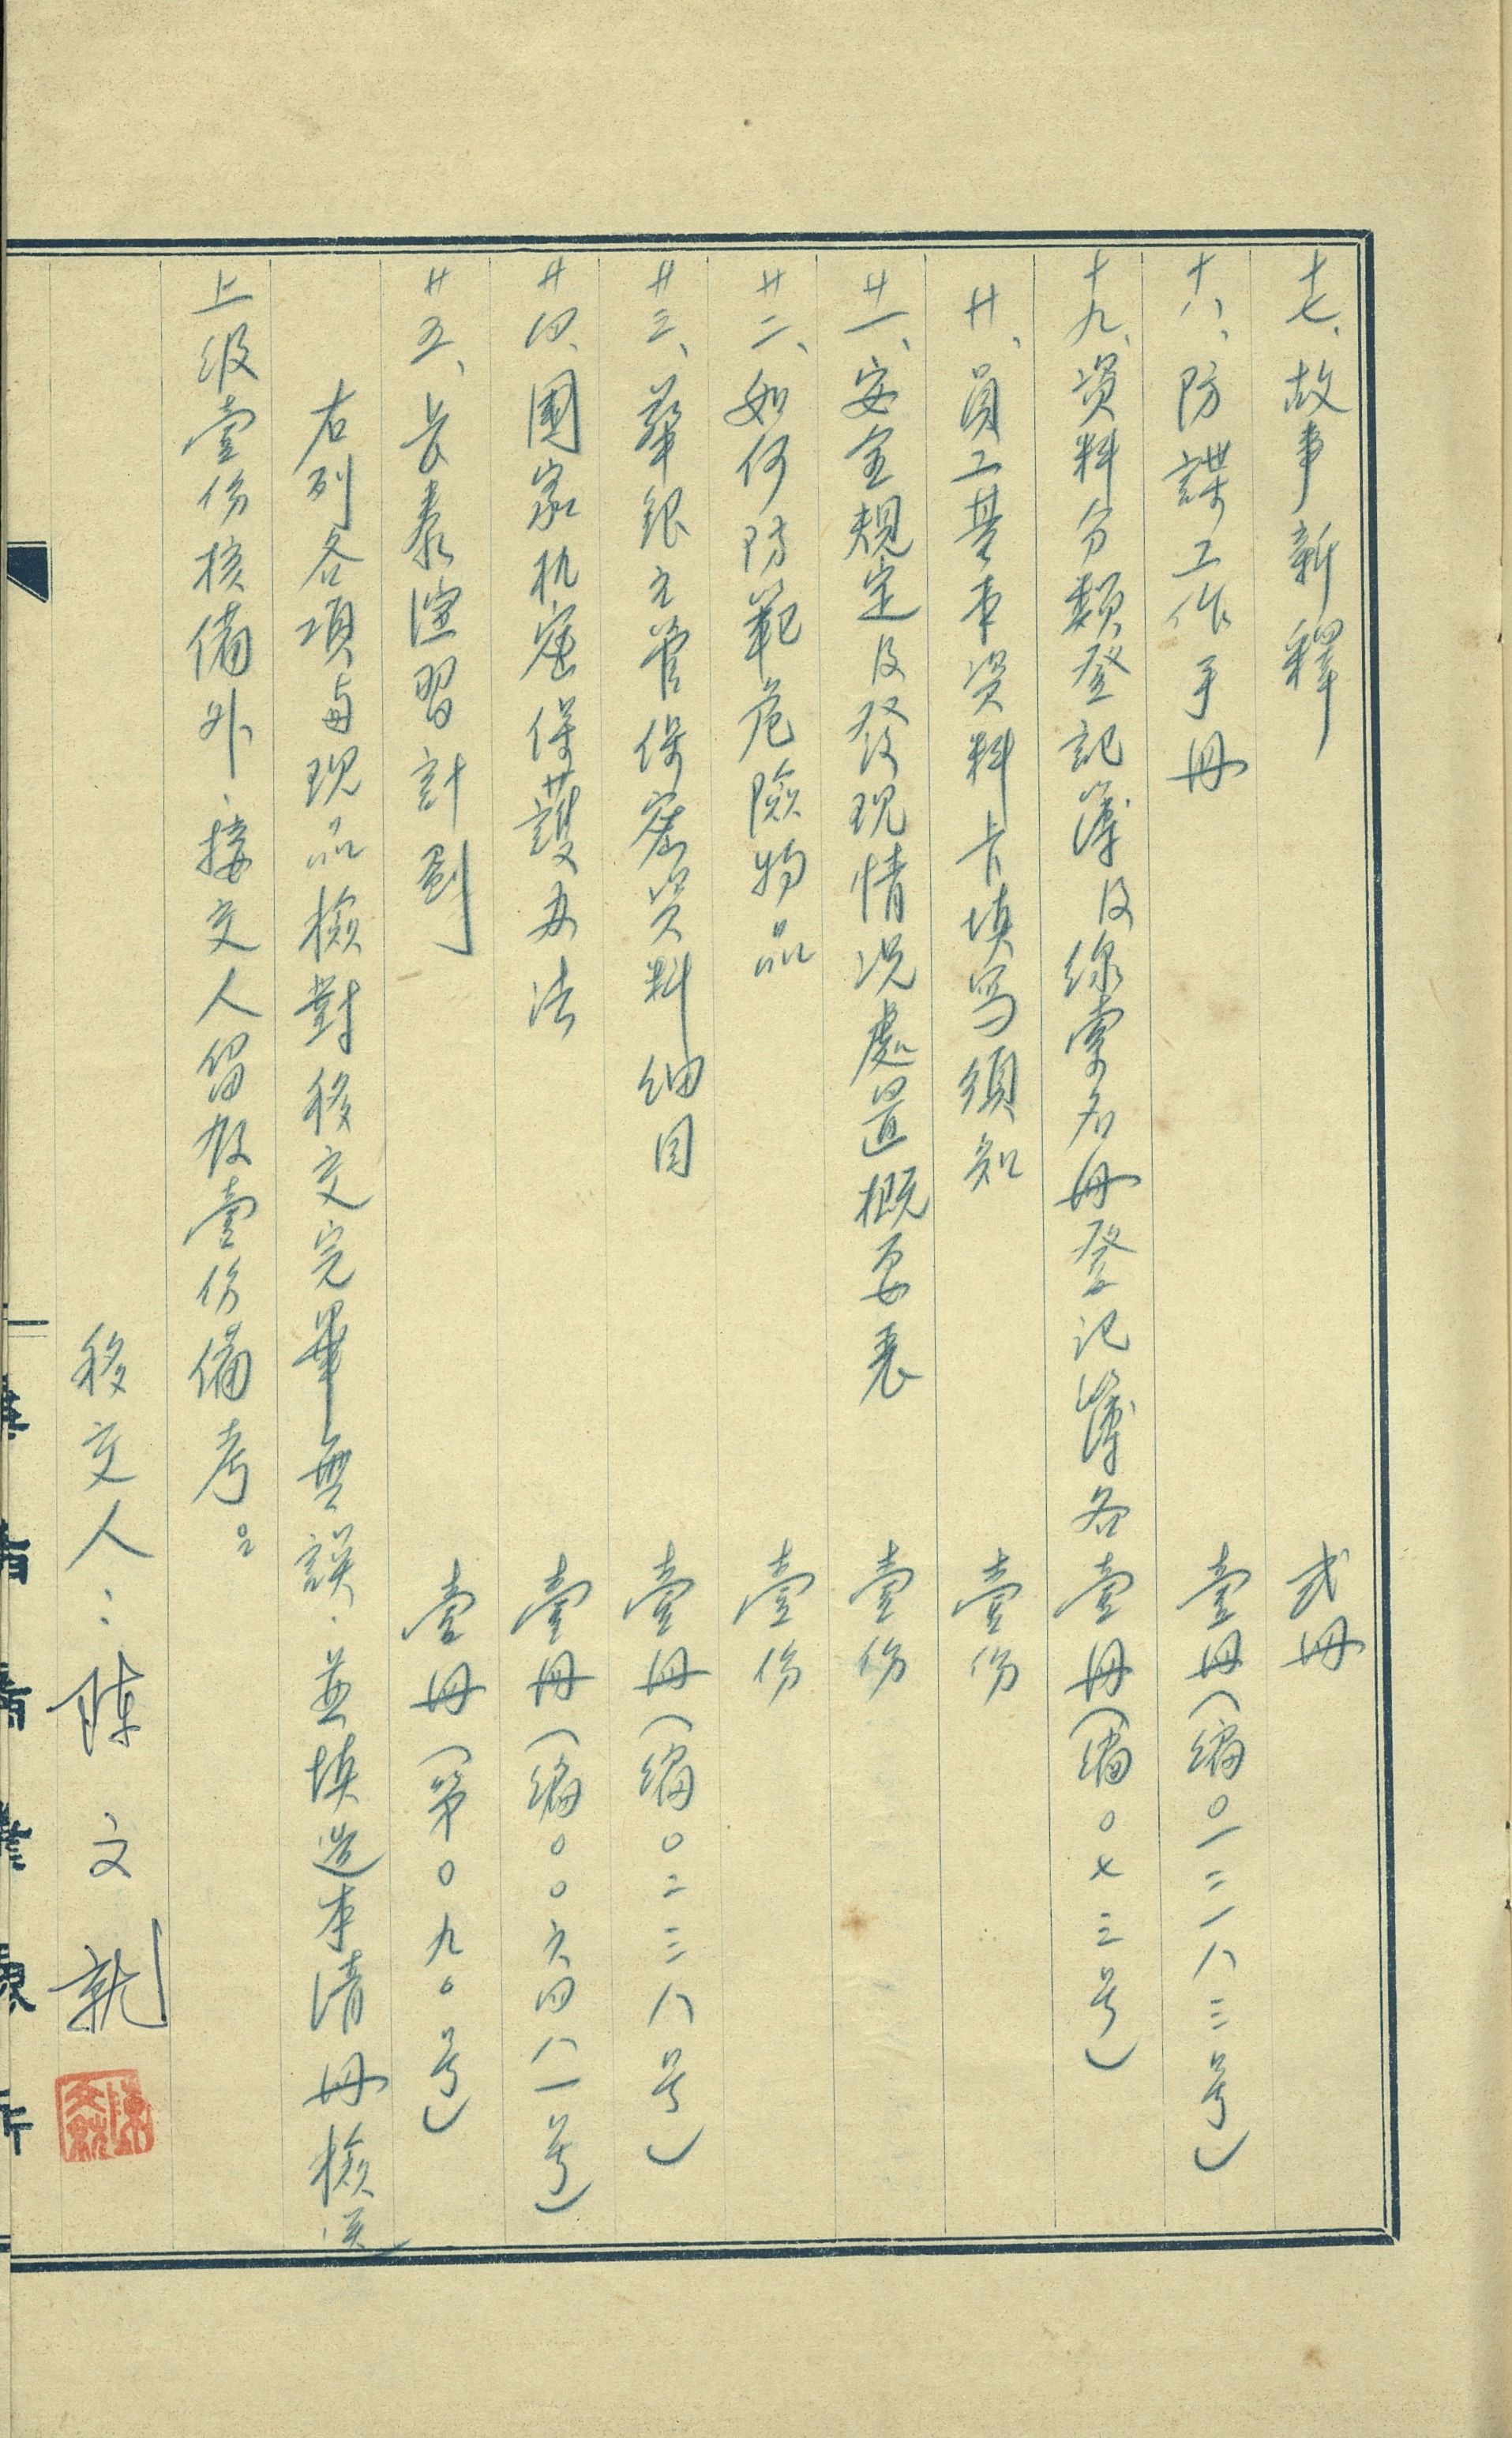 十七、故事新釋　弍冊
十八、防諜工作手冊　壹冊（編〇一三一八三号）
十九、資料分類登記簿及線索名冊登记簿各壹冊（編〇七三号）
廿、員工基本資料卡填写須知　壹份
廿一、安全規定及發現情况處置概要表　壹份
廿二、如何防範危險物品　壹份
廿三、華銀主管保密資料细目　壹冊（編〇二三八号）
廿四、國家机密保護办法　壹冊（編〇〇六四八一号）
廿五、長泰演習計劃　壹冊（第〇九〇号）
右列各項与現品檢對移交完畢無誤．並填造本清冊檢送
上级壹份核備外．接交人留存壹份備考。
移交人：陳文就
陳文就